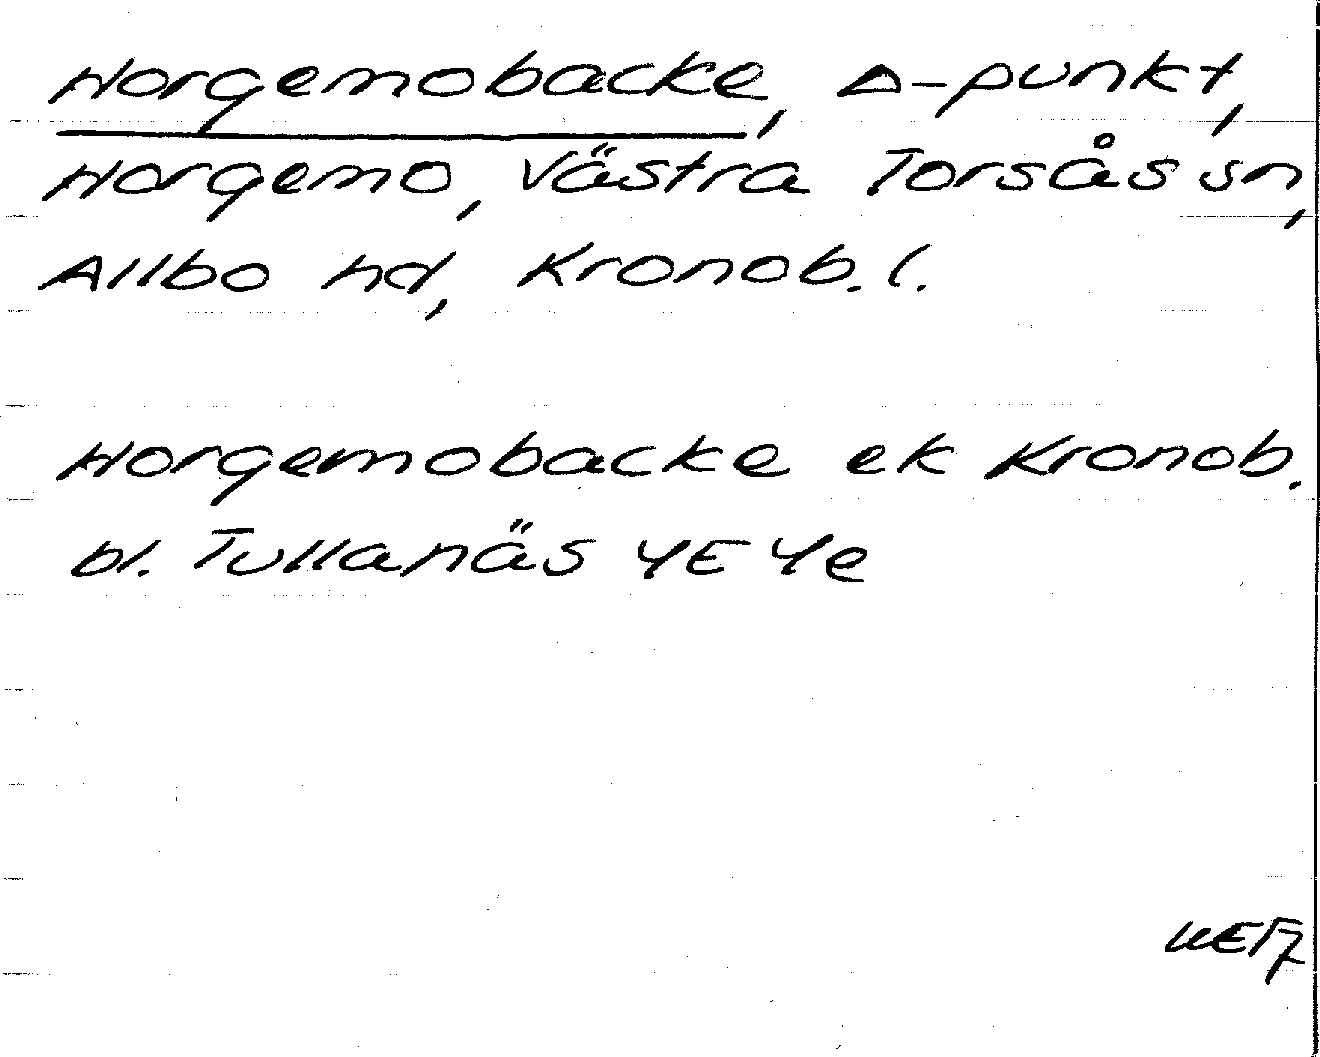 Horgemobacke, Δ-punkt,
Horgemo, Västra Torsås sn,
Allbo hd, Kronob. l.
Horgemobacke ek Kronob.
bl. Tullanäs 4E 4e